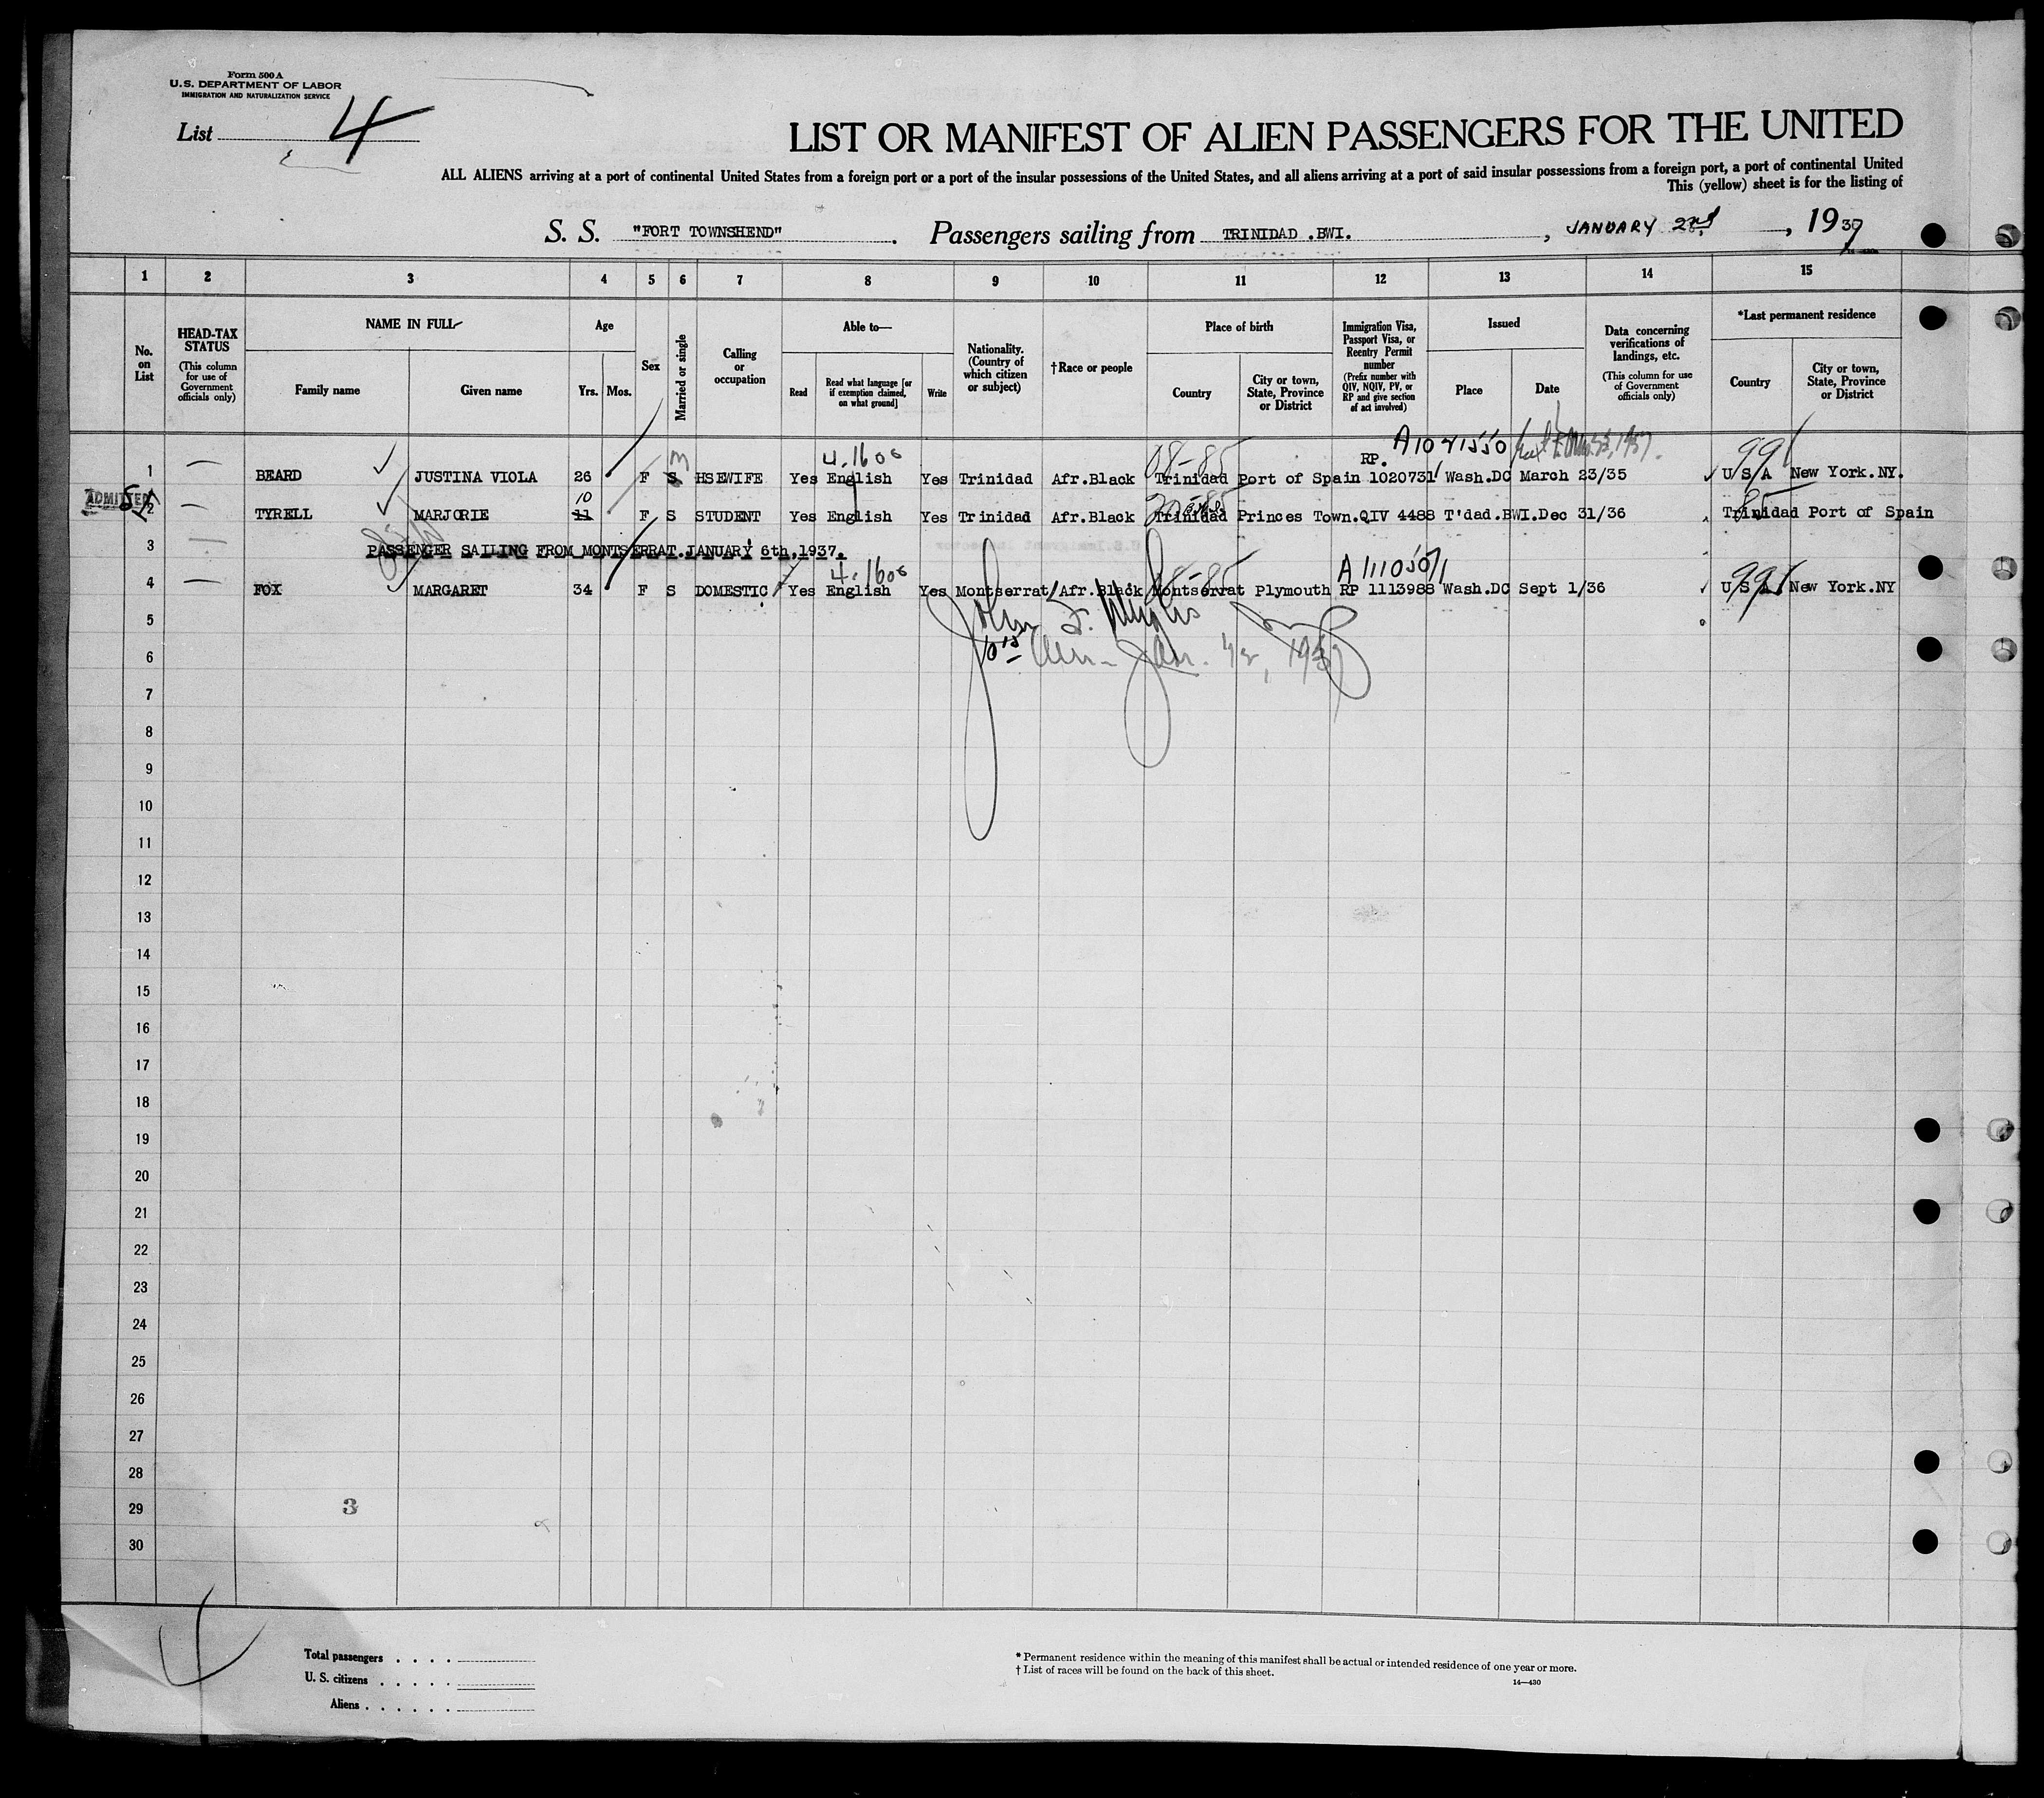 Form 500 A
U.S. DEPARTMENT OF LABOR
IMMIGRATION AND NATURALIZATION SERVICE
List 4
LIST OR MANIFEST OF ALIEN PASSENGERS FOR THE UNITED
ALL ALIENS arriving at a port of continental United States from a foreign port or a port of the insular possessions of the United States, and all aliens arriving at a port of said insular possessions from a foreign port, a port of continental United
This (yellow) sheet is for the listing of
S. S. "FORT TOWNSHEND". Passengers sailing from TRINIDAD .BWI. , JANUARY 2nd, 1937
1 2 3 4 5 6 7 8 9 10 11 12 13 14 15
No. on List
HEAD-TAX STATUS (This column for use of Government officials only)
NAME IN FULL
Family name
Given name
Age
Yrs. Mos.
Sex
Married or single
Calling or occupation
Able to—
Read
Read what language [or if exemption claimed, on what ground]
Write
Nationality. (Country of which citizen or subject)
†Race or people
Place of birth
Country
City or town, State, Province or District
Immigration Visa, Passport Visa, or Reentry Permit number (Prefix number with QIV, NQIV, PV, or RP and give section of act involved)
Issued
Place
Date
Data concerning verifications of landings, etc. (This column for use of Government officials only)
*Last permanent residence
Country
City or town, State, Province or District
4-1606 08-85 A1041550 99
M RP.
1 BEARD JUSTINA VIOLA 26 F S HSEWIFE Yes English Yes Trinidad Afr.Black Trinidad Port of Spain 1020731 Wash.DC March 23/35 U S A New York.NY.
ADMITTED
10 85
2 TYRELL MARJORIE 11 F S STUDENT Yes English Yes Trinidad Afr.Black Trinidad Princes Town.QIV 4488 T'dad.BWI.Dec 31/36 Trinidad Port of Spain
3 PASSENGER SAILING FROM MONTSERRAT.JANUARY 6th,1937.
4-1606 08-85 A1110571 99
4 FOX MARGARET 34 F S DOMESTIC Yes English Yes Montserrat Afr.Black Montserrat Plymouth RP 1113988 Wash.DC Sept 1/36 U S A New York.NY
5
John F.
6
Jan. 1937
7
8
9
10
11
12
13
14
15
16
17
18
19
20
21
22
23
24
25
26
27
28
29 3
30
Total passengers . . . .
U. S. citizens . . . . .
Aliens . . . . . .
* Permanent residence within the meaning of this manifest shall be actual or intended residence of one year or more.
† List of races will be found on the back of this sheet.
14—430